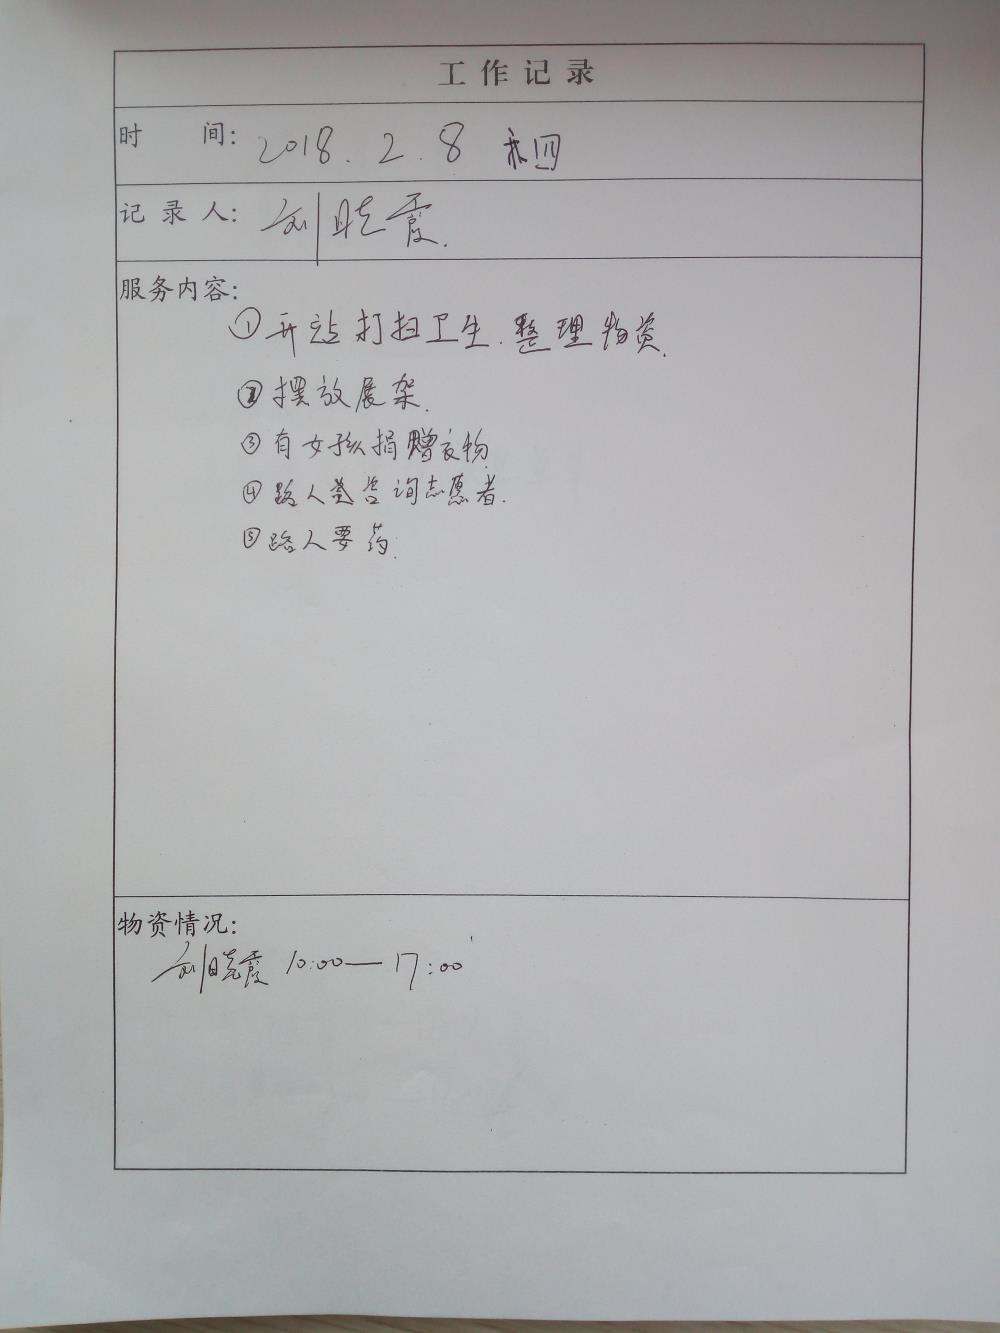 工作记录
时 间: 2018.2.8 周四
记录人: 刘晓霞.
服务内容:
① 开站打扫卫生.整理物资.
② 摆放展架.
③ 有女孩捐赠衣物.
④ 路人咨询志愿者.
⑤ 路人要药.
物资情况:
刘晓霞 10:00—17:00